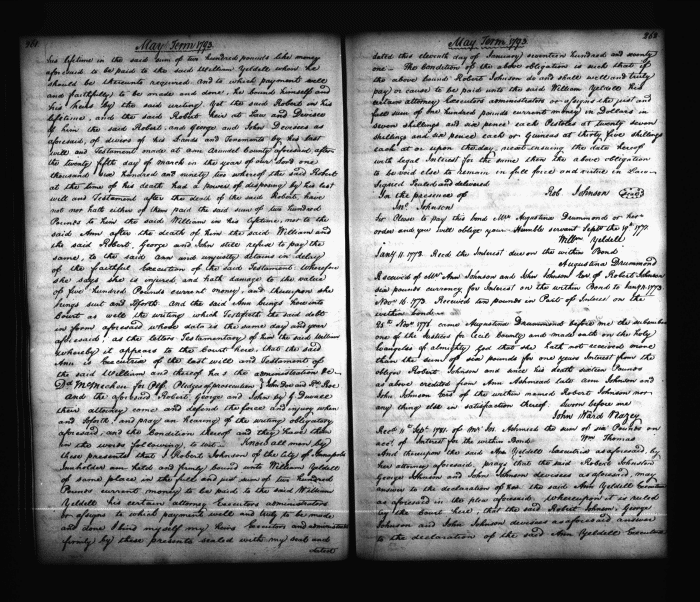 May Term 1793.
his lifetime in the said sum of two hundred pounds like money
aforesaid to be paid to the said William Yeldell when he
should be thereunto required and to which payment well
and faithfully to be made and done, he bound himself and
his heirs by the said writing Yet the said Robert in his
lifetime, and the said Robert heir at Law and Devisee
of him the said Robert, and George and John Devisees as
aforesaid, of divers of his Lands and Tenements by his last
will and Testament made at ann Arundel County aforesaid, after
the twenty fifth day of march in the year of our Lord one
thousand and ninety two whereof the said Robert
at the time of his death had a power of disposing by his last
will and Testament after the death of the said Robert, have
not nor hath either of them paid the said sum of two hundred
Pounds to him the said William in his lifetime, nor to the
said Ann after the death of him the said William and
the said Robert, George and John still refuse to pay the
same, to the said Ann and unjustly detains in delay
of the faithful Execution of the said Testament. Wherefore
she says she is injured and hath damage to the value
of five hundred Pounds current money, and thereupon she
brings suit and so forth and the said Ann brings here into
Court as well the writing which Testifieth the said debt
in form aforesaid whose date is the same day and year
aforesaid, as the letters Testamentary of him the said William
whereby it appears to the Court here, that the said
Ann is Executrix of the last will and Testament of
the said William and thereof has the administration &c
for Plf. Pledges of prosecution John Doe and Rd. Roe
And the aforesaid Robert, George and John by G Duvall
their attorney come and defend the force and injury when
and so forth, and pray an hearing of the writing obligatory
aforesaid, and the Condition thereof and they have them
in the words following, to wit. Know all men by
these presents that I Robert Johnson of the City of Annapolis
Innholder am held and firmly bound unto William Yeldell
of same place, in the full and just sum of two hundred
Pounds current money to be paid to the said William
Yeldell his certain attorney Executors administrators
or assigns to which payment well and truly to be made
and done I bind myself my heirs Executors and administrators
firmly by these presents sealed with my seal and
dated
May Term 1793.
dated this eleventh day of January seventeen hundred and seventy
one - The condition of the above obligation is such that if
the above bound Robert Johnson do and shall well and truly
pay or cause to be paid unto the said William Yeldell his
certain attorney Executors administrators or assigns the just and
full sum of one hundred pounds current money in Dollars at
seven shillings and six pence each Pistoles at twenty seven
shillings and six pence each or Guineas at thirty five shillings
each at or upon the day, next ensuing the date hereof
with legal Interest for the same then the above obligation
to be void else to remain in full force and virtue in Law -
Signed Sealed and delivered
In the presence of Rob. Johnson (Seal)
Jos. Johnson
Sr Please to pay this bond Mrs Augustina Drummond or her
order and you will oblige your Humble servant Septr the 19th 177
Willm Yeldell
Jany 11. 1773. Recd the Interest due on the within Bond
Augustina Drummond
Received of Mrs Ann Johnson and John Johnson Exr of Robert Johnson
six pounds currency for Interest on the within Bond to 1773
Novr 16. 1773. Received ten pounds in Part of Interest on the
within bond.
21st Novr 1776 came Augustina Drummond before me the subscriber
one of the Justices for Cecil County and made oath on the holy
Evangeles of almighty God that she hath not received more
than the sum of six pounds for one years Interest from the
obligor Robert Johnson and since his death sixteen Pounds
as above credited from Ann Ashmead late Ann Johnson and
John Johnson Exrs of the within named Robert Johnson nor
any thing else in satisfaction thereof. Sworn before me
John Ward Veazey
Recd 11th Septr 1781 of Mr Jos. Ashmead the sum of six Pounds on
acct of Interest for the within Bond. Wm Thomas
And thereupon the said Ann Yeldell Executrix as aforesaid, by
her attorney aforesaid, prays that the said Robert Johnson
George Johnson and John Johnson devisees as aforesaid, may
answer to the declaration of her the said Ann Yeldell Executrix
as aforesaid in the plea aforesaid. Whereupon it is ruled
by the Court here, that the said Robert Johnson, George
Johnson and John Johnson devisees as aforesaid answer
to the declaration of the said Ann Yeldell Executrix